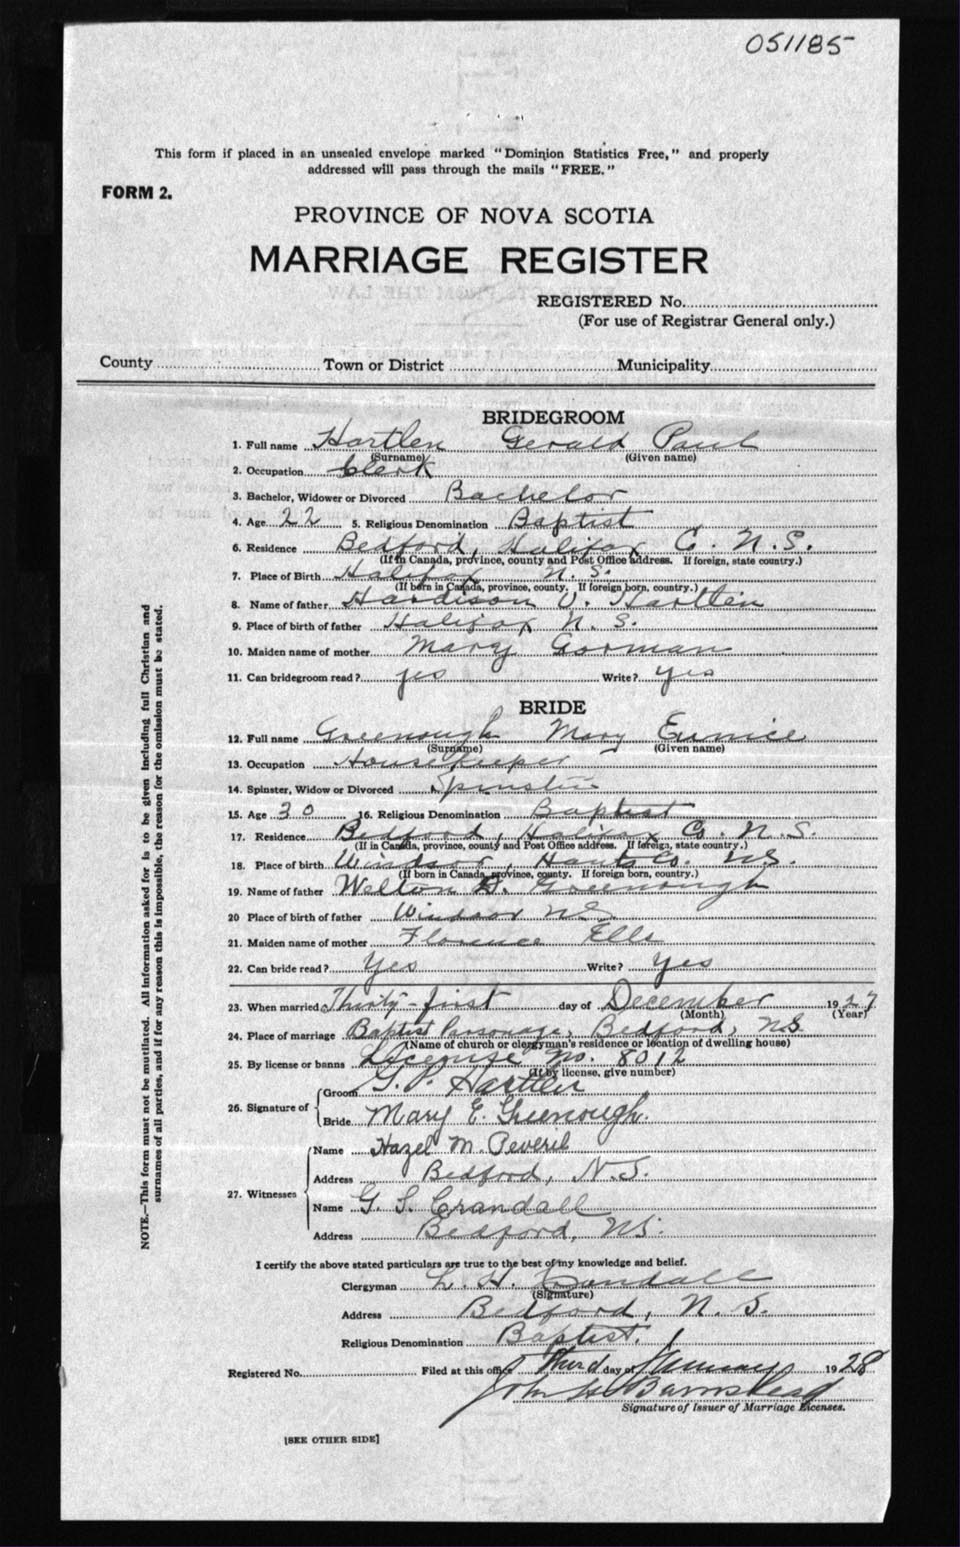 051185
This form if placed in an unsealed envelope marked "Dominion Statistics Free," and properly
addressed will pass through the mails "FREE."
FORM 2.
PROVINCE OF NOVA SCOTIA
MARRIAGE REGISTER
REGISTERED No.
(For use of Registrar General only.)
County Town or District Municipality
BRIDEGROOM
1. Full name Hartlen Gerald Paul
(Surname) (Given name)
2. Occupation Clerk
3. Bachelor, Widower or Divorced Bachelor
4. Age 22 5. Religious Denomination Baptist
6. Residence Bedford, Halifax C. N.S.
(If in Canada, province, county and Post Office address. If foreign, state country.)
7. Place of Birth Halifax N.S.
(If born in Canada, province, county. If foreign born, country.)
8. Name of father Hardison V. Hartlen
9. Place of birth of father Halifax N.S.
10. Maiden name of mother Mary Gorman
11. Can bridegroom read? yes Write? yes
BRIDE
12. Full name Greenough Mary Eunice
(Surname) (Given name)
13. Occupation Housekeeper
14. Spinster, Widow or Divorced Spinster
15. Age 30 16. Religious Denomination Baptist
17. Residence Bedford, Halifax Co. N.S.
(If in Canada, province, county and Post Office address. If foreign, state country.)
18. Place of birth Windsor, Hants Co. N.S.
(If born in Canada, province, county. If foreign born, country.)
19. Name of father Welton Greenough
20 Place of birth of father Windsor N.S.
21. Maiden name of mother Florence Ells
22. Can bride read? Yes Write? Yes
23. When married Thirty-first day of December 1927
(Month) (Year)
24. Place of marriage Baptist Parsonage, Bedford, N.S.
(Name of church or clergyman's residence or location of dwelling house)
25. By license or banns License No. 8012
(If by license, give number)
26. Signature of Groom G. P. Hartlen
Bride Mary E. Greenough.
27. Witnesses Name Hazel M. Peveril
Address Bedford, N.S.
Name G. S. Crandall
Address Bedford, N.S.
I certify the above stated particulars are true to the best of my knowledge and belief.
Clergyman L. H. Crandall
(Signature)
Address Bedford, N.S.
Religious Denomination Baptist.
Registered No. Filed at this office Third day of January 1928
John H. Barnstead
Signature of Issuer of Marriage Licenses.
[SEE OTHER SIDE]
NOTE.—This form must not be mutilated. All information asked for is to be given including full Christian and
surnames of all parties, and if for any reason this is impossible, the reason for the omission must be stated.